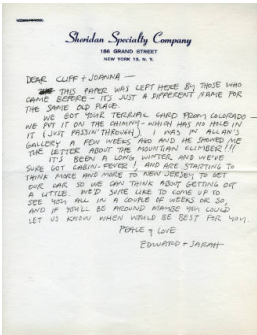 Sheridan Specialty Company
186 GRAND STREET
NEW YORK 13, N. Y.
DEAR CLIFF + JOANNA —
THIS PAPER WAS LEFT HERE BY THOSE WHO
CAME BEFORE — IT'S JUST A DIFFERENT NAME FOR
THE SAME OLD PLACE.
WE GOT YOUR TERRIAL CARD FROM COLORADO —
WE PUT IT ON THE CHIMNY — WHICH HAS NO HOLE IN
IT (JUST PASSIN' THROUGH). I WAS IN ALLAN'S
GALLERY A FEW WEEKS AGO AND HE SHOWED ME
THE LETTER ABOUT THE MOUNTIAN CLIMBER!!!
IT'S BEEN A LONG, WINTER AND WE'VE
SURE GOT CABIN-FEVER! AND ARE STARTING TO
THINK MORE AND MORE TO NEW JERSEY TO GET
OUR CAR SO WE CAN THINK ABOUT GETTING OUT
A LITTLE. WE'D SURE LIKE TO COME UP TO
SEE YOU ALL IN A COUPLE OF WEEKS OR SO,
AND IF YOU'LL BE AROUND MAYBE YOU COULD
LET US KNOW WHEN WOULD BE BEST FOR YOU.
PEACE & LOVE
EDWARD + SARAH